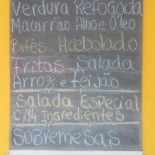 Verdura Refogada
Macarrão Alho e Óleo
Bifes Acebolado
fritas Salada
Arroz e feijão
Salada Especial
C/14 Ingredientes
Sobremesas